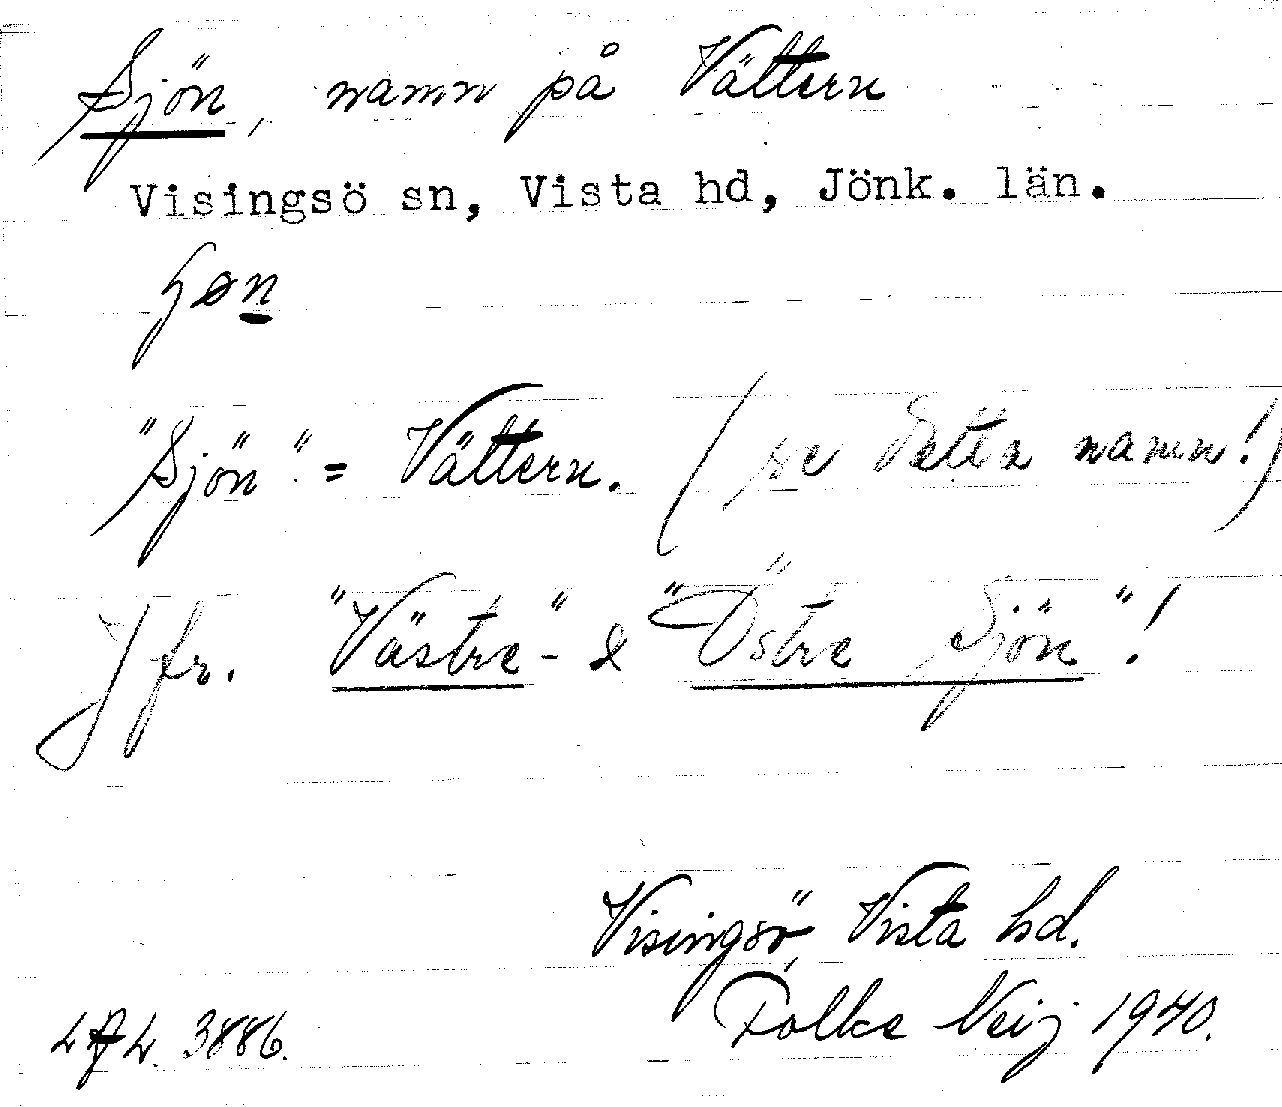 Sjön, namn på Vättern
Visingsö sn, Vista hd, Jönk. län.
"Sjön" = Vättern. (se detta namn!)
Jfr. "Västre"- & "Östre Sjön"!
Visingsö, Vista hd.
Folke Neij 1940.
3886.